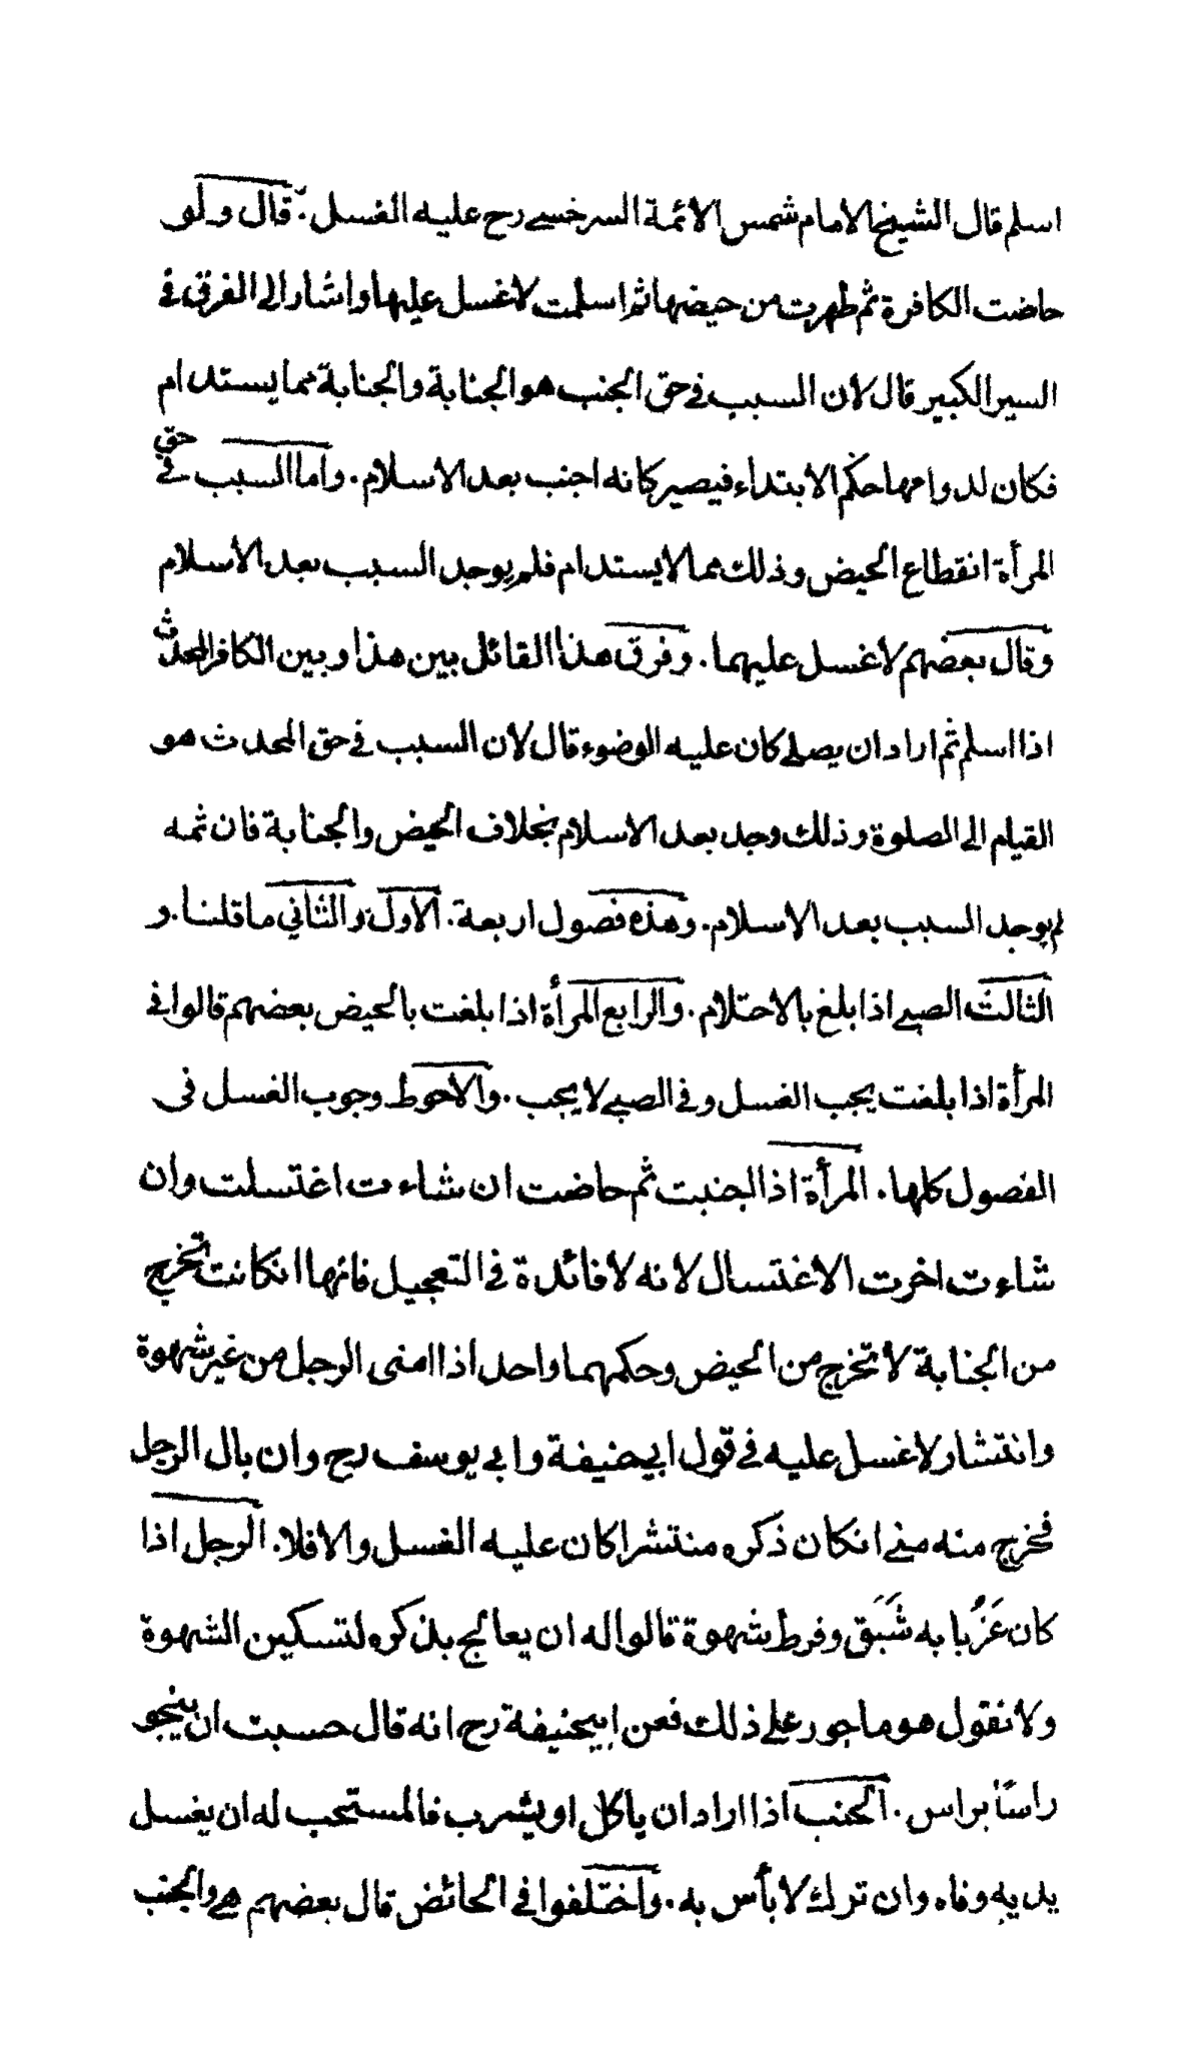 اسلم قال الشيخ الامام شمس الائمة السرخسي رح عليه الغسل. قال ولو
حاضت الكافرة ثم طهرت من حيضها ثم اسلمت لا غسل عليها واشار الى الفرق في
السير الكبير قال لان السبب في حق الجنب هو الجنابة والجنابة مما يستدام
فكان لدوامها حكم الابتداء فيصير كانه اجنب بعد الاسلام. واما السبب في حق
المرأة انقطاع الحيض وذلك مما لا يستدام فلم يوجد السبب بعد الاسلام
وقال بعضهم لا غسل عليهما. وفرق هذا القائل بين هذا وبين الكافر المحدث
اذا اسلم ثم اراد ان يصلي كان عليه الوضوء قال لان السبب في حق المحدث هو
القيام الى الصلوة وذلك وجد بعد الاسلام بخلاف الحيض والجنابة فان ثمه
لم يوجد السبب بعد الاسلام. وهذه فصول اربعة. الاول والثاني ما قلنا. و
الثالث الصبي اذا بلغ بالاحتلام. والرابع المرأة اذا بلغت بالحيض بعضهم قالوا في
المرأة اذا بلغت يجب الغسل وفي الصبي لا يجب. والاحوط وجوب الغسل فى
الفصول كلها. المرأة اذا اجنبت ثم حاضت ان شاءت اغتسلت وان
شاءت اخرت الاغتسال لانه لا فائدة في التعجيل فانها انكانت تخرج
من الجنابة لا تخرج من الحيض وحكمهما واحد اذا امنى الرجل من غير شهوة
وانتشار لا غسل عليه في قول ابي حنيفة وابي يوسف رح وان بال الرجل
فخرج منه مني انكان ذكره منتشرا كان عليه الغسل والا فلا. الرجل اذا
كان عَزُبا به شَبَق وفرط شهوة قالوا له ان يعالج بذكره لتسكين الشهوة
ولا نقول هو ماجور على ذلك فعن ابيحنيفة رح انه قال حسبت ان ينجو
راسًا براس. الجنب اذا اراد ان ياكل او يشرب فالمستحب له ان يغسل
يديه وفاه وان ترك لا بأس به. واختلفوا في الحائض قال بعضهم هي والجنب